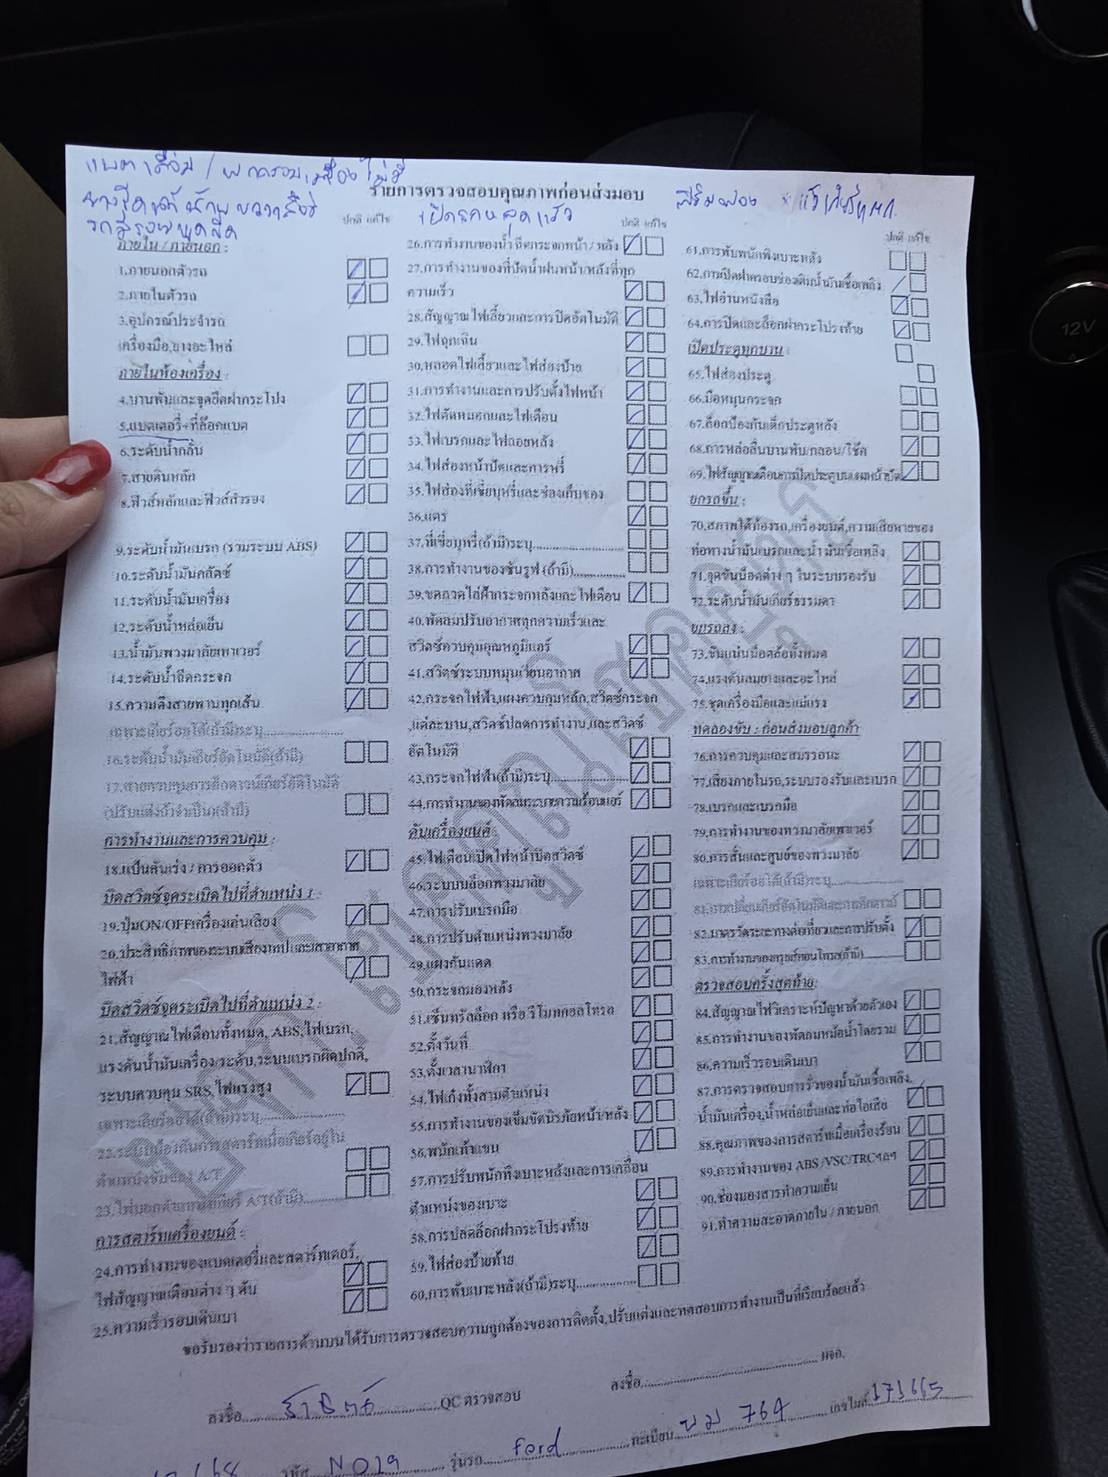 แบตเสื่อม /
รายการตรวจสอบคุณภาพก่อนส่งมอบ
ปกติ แก้ไข
ภายใน / ภายนอก :
1.ภายนอกตัวรถ
2.ภายในตัวรถ
3.อุปกรณ์ประจำรถ
เครื่องมือ,ยางอะไหล่
ภายในห้องเครื่อง :
4.บานพับและจุดยึดฝากระโปง
5.แบตเตอรี่+ที่ล๊อกแบต
6.ระดับน้ำกลั่น
7.สายดินหลัก
8.ฟิวส์หลักและฟิวส์สำรอง
9.ระดับน้ำมันเบรก (รวมระบบ ABS)
10.ระดับน้ำมันคลัตซ์
11.ระดับน้ำมันเครื่อง
12.ระดับน้ำหล่อเย็น
13.น้ำมันพวงมาลัยเพาเวอร์
14.ระดับน้ำฉีดกระจก
15.ความตึงสายพานทุกเส้น
เฉพาะเกียร์ออโต้(ถ้ามี)ระบุ
16.ระดับน้ำมันเกียร์อัตโนมัติ(ถ้ามี)
17.สายควบคุมการคิกดาวน์เกียร์อัตโนมัติ
(ปรับแต่งถ้าจำเป็น)(ถ้ามี)
การทำงานและการควบคุม :
18.แป้นคันเร่ง / การออกตัว
บิดสวิตซ์จุดระเบิดไปที่ตำแหน่ง 1 :
19.ปุ่มON/OFFเครื่องเล่นเสียง
20.ประสิทธิภาพของระบบเสียงเทปและเสาอากาศ
ไฟฟ้า
บิดสวิตซ์จุดระเบิดไปที่ตำแหน่ง 2 :
21.สัญญาณไฟเตือนทั้งหมด, ABS,ไฟเบรก,
แรงดันน้ำมันเครื่อง/ระดับ,ระบบเบรกผิดปกติ,
ระบบควบคุม SRS,ไฟแรงสูง
เฉพาะเกียร์ออโต้(ถ้ามี)ระบุ
22.ระบบป้องกันการสตาร์ทเมื่อเกียร์อยู่ใน
ตำแหน่งขับของ A/T
23.ไฟบอกตำแหน่งเกียร์ A/T(ถ้ามี)
การสตาร์ทเครื่องยนต์ :
24.การทำงานของแบตเตอรี่และสตาร์ทเตอร์,
ไฟสัญญาณเตือนต่าง ๆ ดับ
25.ความเร็วรอบเดินเบา
ปกติ แก้ไข
26.การทำงานของน้ำฉีดกระจกหน้า / หลัง
27.การทำงานของที่ปัดน้ำฝนหน้า/หลังที่ทุก
ความเร็ว
28.สัญญาณไฟเลี้ยวและการปิดอัตโนมัติ
29.ไฟฉุกเฉิน
30.หลอดไฟเลี้ยวและไฟส่องป้าย
31.การทำงานและการปรับตั้งไฟหน้า
32.ไฟตัดหมอกและไฟเตือน
33.ไฟเบรกและไฟถอยหลัง
34.ไฟส่องหน้าปัดและการหรี่
35.ไฟส่องที่เขี่ยบุหรี่และช่องเก็บของ
36.แตร
37.ที่เขี่ยบุหรี่(ถ้ามี)ระบุ
38.การทำงานของซันรูฟ(ถ้ามี)
39.ขดลวดไล่ฝ้ากระจกหลังและไฟเตือน
40.พัดลมปรับอากาศทุกความเร็วและ
สวิตซ์ควบคุมอุณหภูมิแอร์
41.สวิตซ์ระบบหมุนเวียนอากาศ
42.กระจกไฟฟ้า,แผงควบคุมหลัก,สวิตซ์กระจก
,แต่ละบาน,สวิตซ์ปลดการทำงาน,และสวิตซ์
อัตโนมัติ
43.กระจกไฟฟ้า(ถ้ามี)ระบุ
44.การทำงานของพัดลมระบายความร้อนแอร์
ดับเครื่องยนต์ :
45.ไฟเตือนเปิดไฟหน้าปิดสวิตซ์
46.ระบบบล็อกพวงมาลัย
47.การปรับเบรกมือ
48.การปรับตำแหน่งพวงมาลัย
49.แผงกันแดด
50.กระจกมองหลัง
51.เซ็นทรัลล็อก หรือ รีโมทคอลโทรล
52.ตั้งวันที่
53.ตั้งเวลานาฬิกา
54.ไฟเก๋งทั้งสามตำแหน่ง
55.การทำงานของเข็มขัดนิรภัยหน้า/หลัง
56.พนักเท้าแขน
57.การปรับพนักพิงเบาะหลังและการเคลื่อน
ตำแหน่งของเบาะ
58.การปลดล็อกฝากระโปรงท้าย
59.ไฟส่องป้ายท้าย
60.การพับเบาะหลัง(ถ้ามี)ระบุ
ปกติ แก้ไข
61.การพับพนักพิงเบาะหลัง
62.การเปิดฝาครอบช่องเติมน้ำมันเชื้อเพลิง
63.ไฟอ่านหนังสือ
64.การปิดและล็อกฝากระโปรงท้าย
เปิดประตูทุกบาน :
65.ไฟส่องประตู
66.มือหมุนกระจก
67.ล็อกป้องกันเด็กประตูหลัง
68.การหล่อลื่นบานพับ/กลอน/โช้ค
69.ไฟสัญญาณเตือนการเปิดประตูบนแผงหน้าปัด
ยกรถขึ้น :
70.สภาพใต้ท้องรถ,เครื่องยนต์,ความเสียหายของ
ท่อทางน้ำมันเบรกและน้ำมันเชื้อเพลิง
71.จุดขันน็อตต่าง ๆ ในระบบรองรับ
72.ระดับน้ำมันเกียร์ธรรมดา
ยกรถลง :
73.ขันแน่นน็อตล้อทั้งหมด
74.แรงดันลมยางและอะไหล่
75.ชุดเครื่องมือและแม่แรง
ทดลองขับ : ก่อนส่งมอบลูกค้า
76.การควบคุมและสมรรถนะ
77.เสียงภายในรถ,ระบบรองรับและเบรก
78.เบรกและเบรกมือ
79.การทำงานของพวงมาลัยเพาเวอร์
80.การสั่นและศูนย์ของพวงมาลัย
เฉพาะเกียร์ออโต้(ถ้ามี)ระบุ
81.การเปลี่ยนเกียร์อัตโนมัติและการคิกดาวน์
82.มาตรวัดระยะทางต่อเที่ยวและการปรับตั้ง
83.การทำงานของครุยส์คอนโทรล(ถ้ามี)
ตรวจสอบครั้งสุดท้าย:
84.สัญญาณไฟวิเคราะห์ปัญหาด้วยตัวเอง
85.การทำงานของพัดลมหม้อน้ำโดยรวม
86.ความเร็วรอบเดินเบา
87.การตรวจสอบการรั่วของน้ำมันเชื้อเพลิง,
น้ำมันเครื่อง,น้ำหล่อเย็นและท่อไอเสีย
88.คุณภาพของการสตาร์ทเมื่อเครื่องร้อน
89.การทำงานของ ABS/VSC/TRCฯลฯ
90.ช่องมองสารทำความเย็น
91.ทำความสะอาดภายใน / ภายนอก
ขอรับรองว่ารายการด้านบนได้รับการตรวจสอบความถูกต้องของการติดตั้ง,ปรับแต่งและทดสอบการทำงานเป็นที่เรียบร้อยแล้ว
ลงชื่อ QC ตรวจสอบ ลงชื่อ ผจก.
รหัส NO19 รุ่นรถ Ford ทะเบียน ขม 764 เลขไมล์ 171665
12V